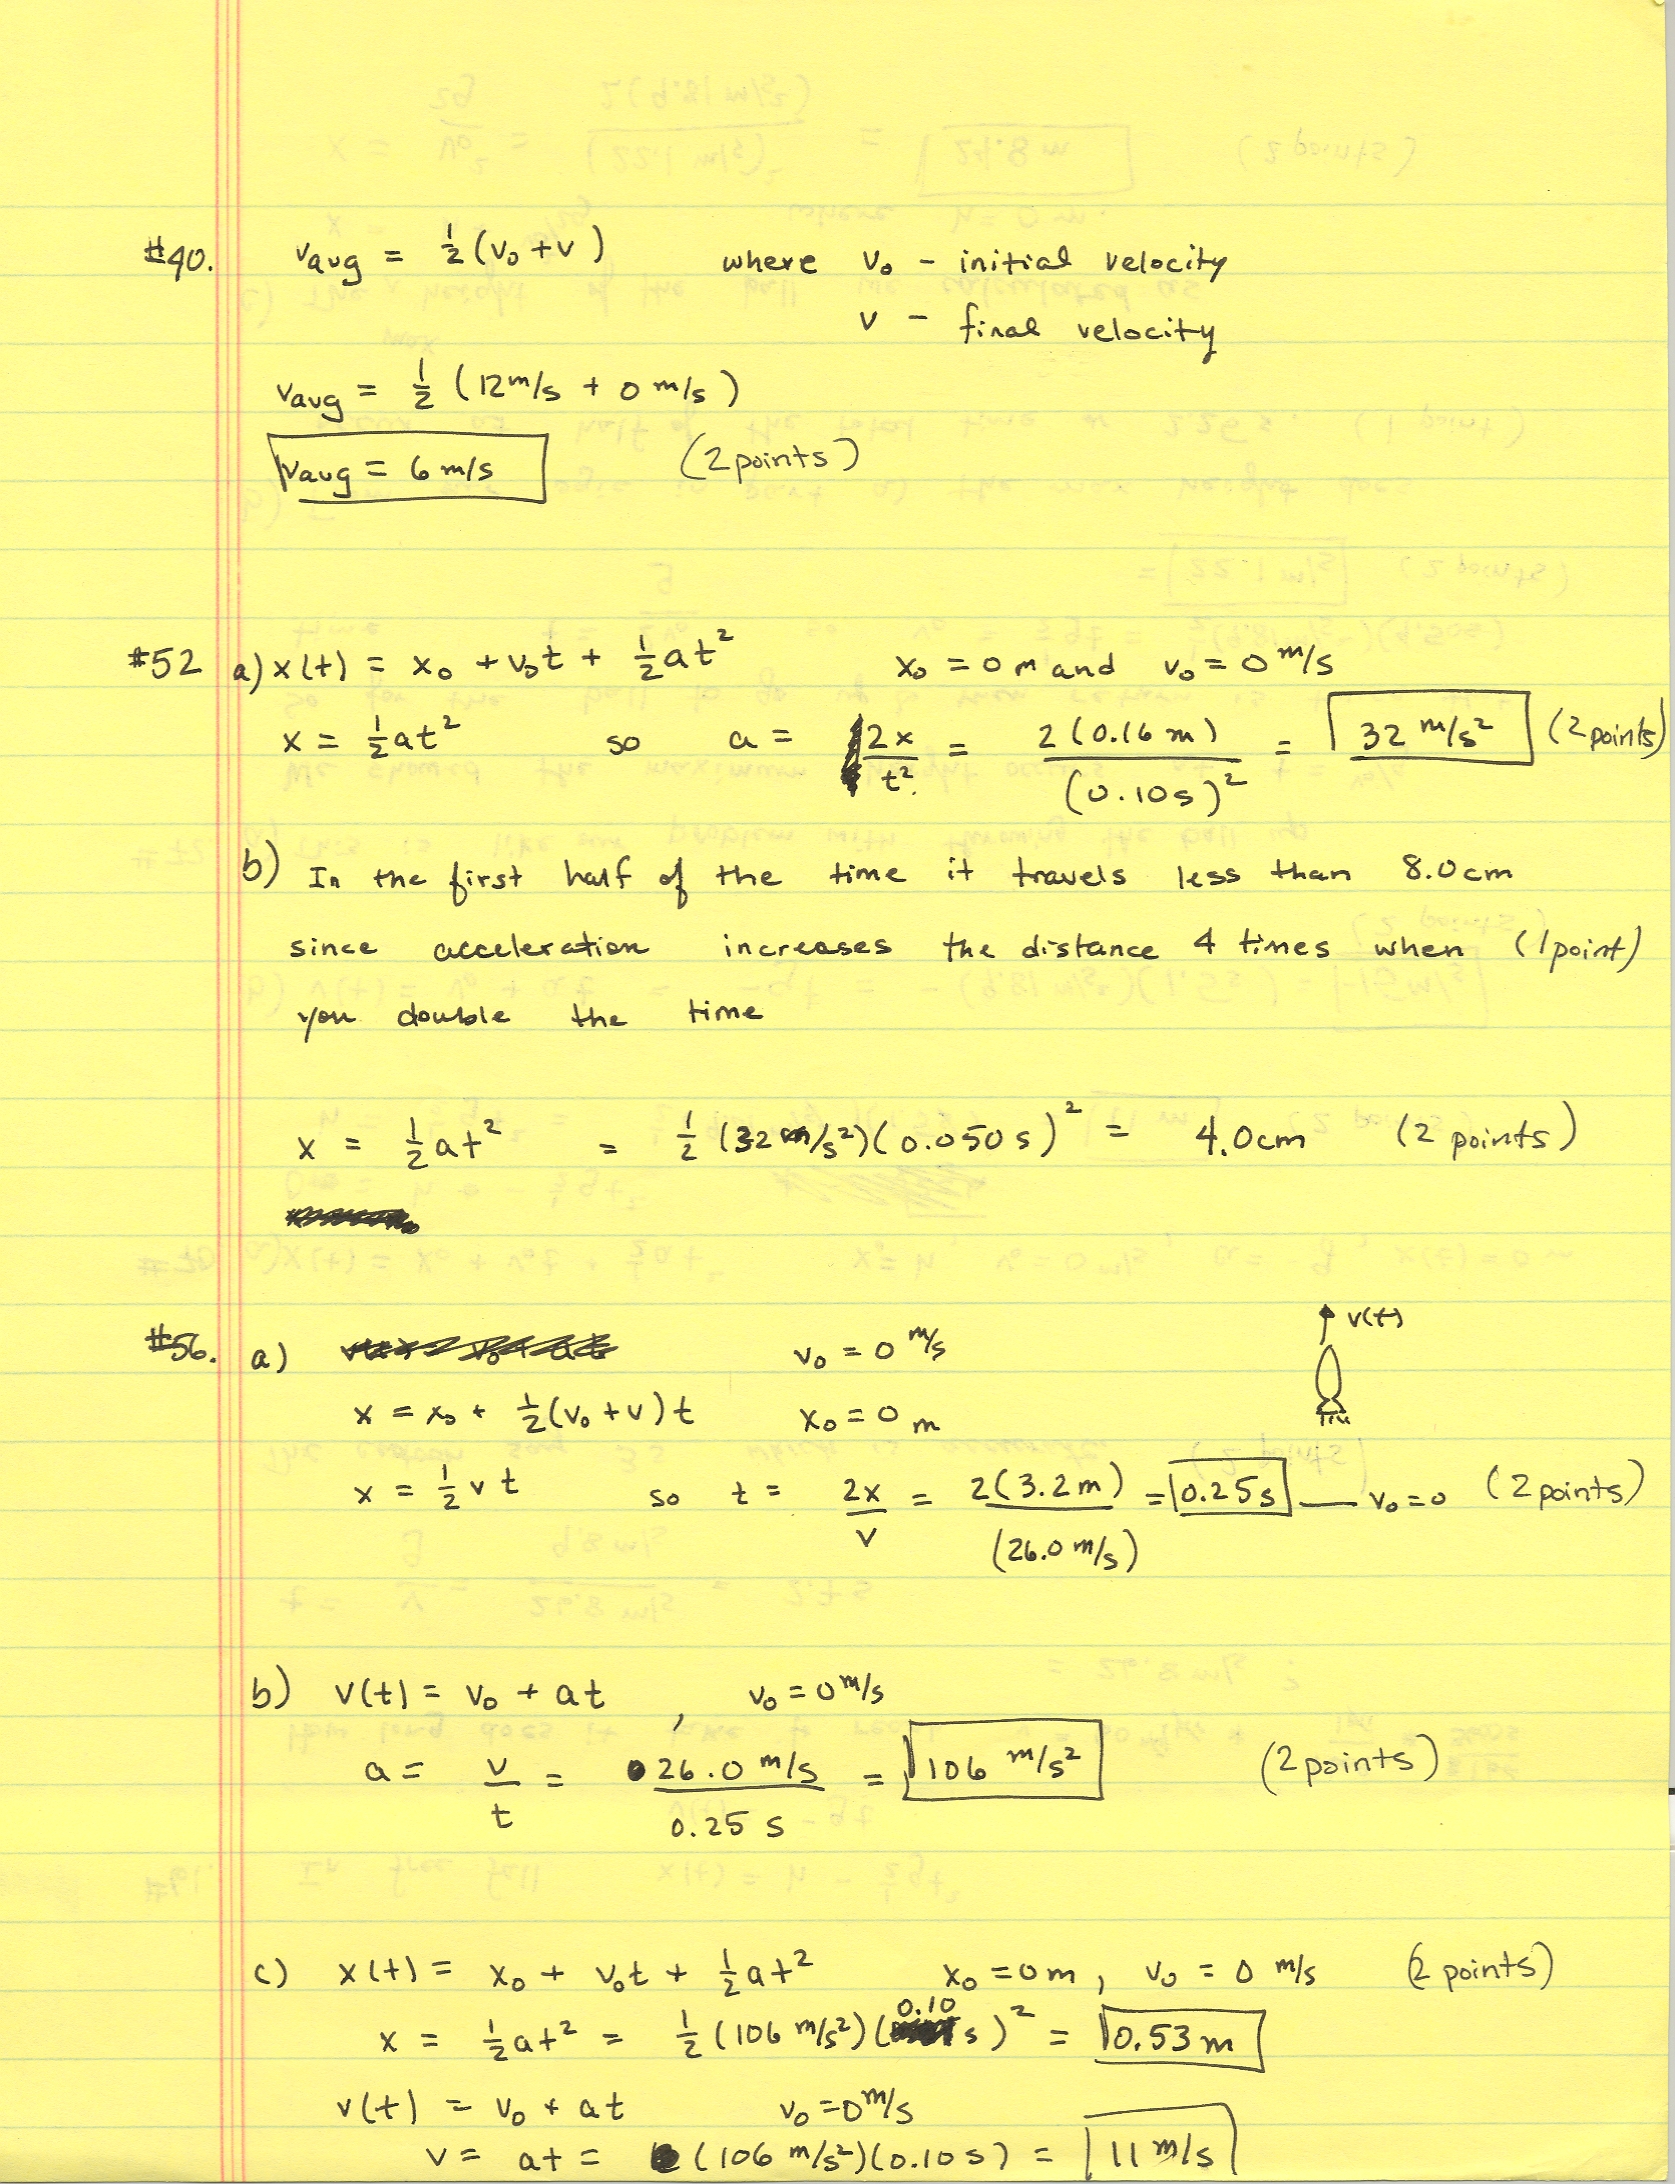 #40. Vavg = 1/2 (v₀ + v) where v₀ - initial velocity
v - final velocity
Vavg = 1/2 (12 m/s + 0 m/s)
Vavg = 6 m/s (2 points)
#52 a) x(t) = x₀ + v₀t + 1/2 at² x₀ = 0 m and v₀ = 0 m/s
x = 1/2 at² so a = 2x/t² = 2(0.16 m)/(0.10 s)² = 32 m/s² (2 points)
b) In the first half of the time it travels less than 8.0 cm
since acceleration increases the distance 4 times when (1 point)
you double the time
x = 1/2 at² = 1/2 (32 m/s²)(0.050 s)² = 4.0 cm (2 points)
#56. a) v₀ = 0 m/s v(t)
x = x₀ + 1/2 (v₀ + v)t x₀ = 0 m
x = 1/2 v t so t = 2x/v = 2(3.2 m)/(26.0 m/s) = 0.25 s — v₀ = 0 (2 points)
b) v(t) = v₀ + at , v₀ = 0 m/s
a = v/t = 26.0 m/s / 0.25 s = 106 m/s² (2 points)
c) x(t) = x₀ + v₀t + 1/2 at² x₀ = 0 m, v₀ = 0 m/s (2 points)
x = 1/2 at² = 1/2 (106 m/s²)(0.10 s)² = 0.53 m
v(t) = v₀ + at v₀ = 0 m/s
v = at = (106 m/s²)(0.10 s) = 11 m/s